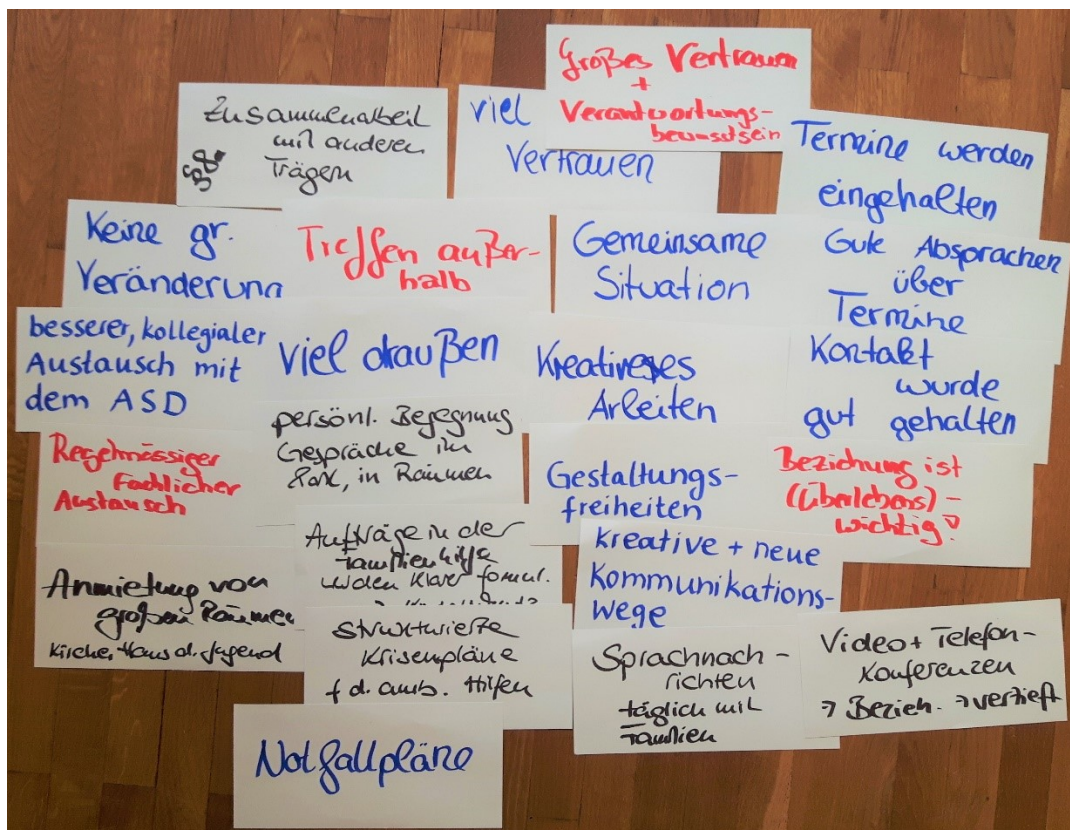 Großes Vertrauen
+
Verantwortungs-
bewusstsein
Zusammenarbeit
mit anderen
Trägern
viel
Vertrauen
Termine werden
eingehalten
Keine gr.
Veränderung
Treffen außer-
halb
Gemeinsame
Situation
Gute Absprachen
über
Termine
besserer, kollegialer
Austausch mit
dem ASD
viel draußen
Kreativeres
Arbeiten
Kontakt
wurde
gut gehalten
persönl. Begegnung
Gespräche im
Park, in Räumen
Regelmässiger
Fachlicher
Austausch
Gestaltungs-
freiheiten
Beziehung ist
(überlebens)-
wichtig!
Aufträge in der
Familienhilfe
werden klarer formul.
kreative + neue
Kommunikations-
wege
Anmietung von
großen Räumen
Kirche, Haus d. Jugend
strukturierte
Krisenpläne
f d. amb. Hilfen
Sprachnach-
richten
täglich mit
Familien
Video + Telefon-
Konferenzen
→ Bezieh. → vertieft
Notfallpläne